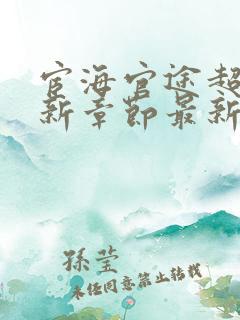 宦海官途超
新章节最新
孙莹
未经同意禁止转载